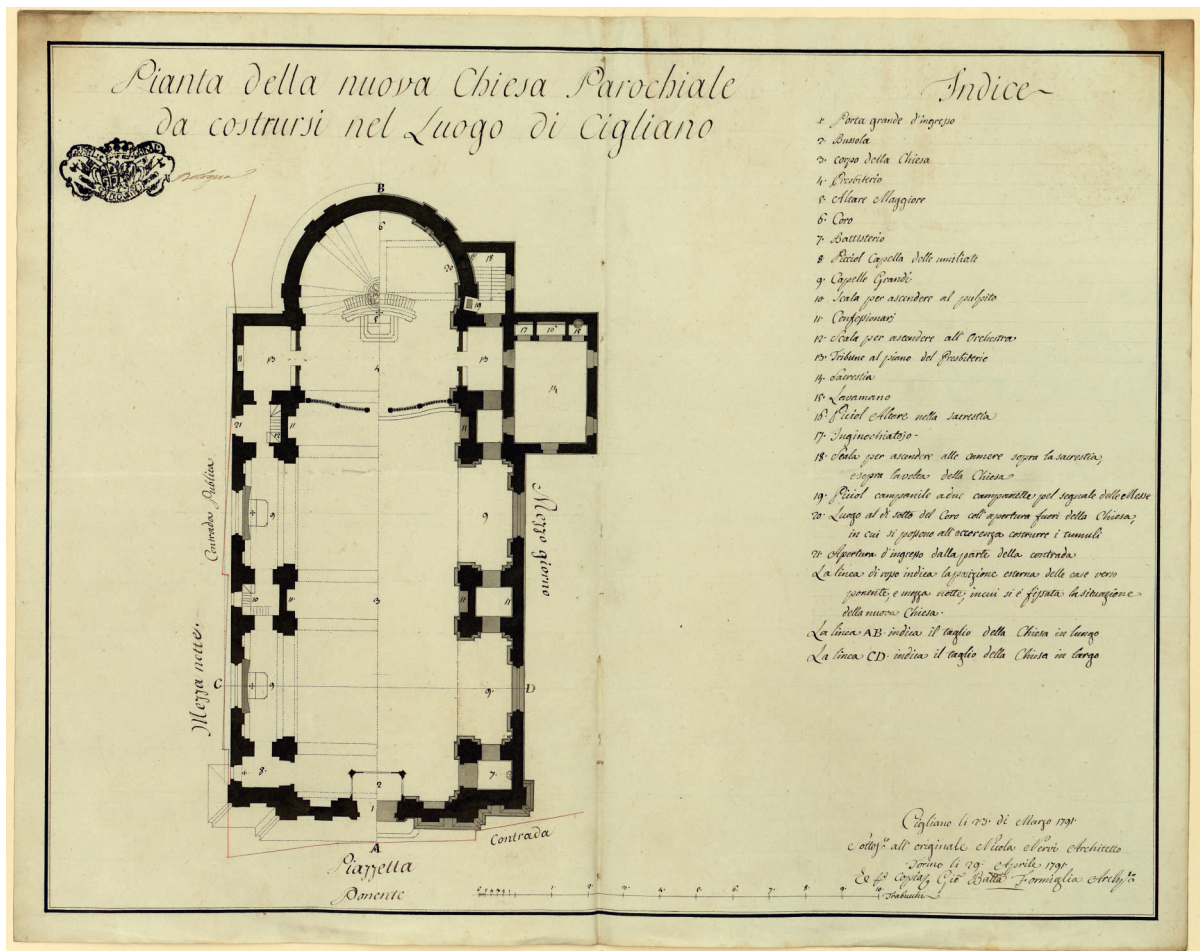 Pianta della nuova Chiesa Parochiale
da costrursi nel Luogo di Cigliano
Indice
1. Porta grande d'ingresso
2. Bussola
3. corpo della Chiesa
4. Presbiterio
5. Altare Maggiore
6. Coro
7. Battisterio
8. Picciol Capella delle umiliate
9. Capelle Grandi
10. Scala per ascendere al pulpito
11. Confessionarj
12. Scala per ascendere all'Orchestra
13. Tribune al piano del Presbiterio
14. Sacrestia
15. Lavamano
16. Piciol Altare nella sacrestia
17. Inginochiatojo
18. Scala per ascendere alle camere sopra la sacrestia,
e sopra la volta della Chiesa
19. Piciol campanile a due campanette pel segnale delle Messe
20. Luogo al di sotto del Coro coll'apertura fuori della Chiesa,
in cui si possono all'occorenza costrurre i tumuli
21. Apertura d'ingresso dalla parte della contrada
La linea di rosso indica la posizione esterna delle case verso
ponente, e mezza notte, in cui si è fissata la situazione
della nuova Chiesa.
La linea AB. indica il taglio della Chiesa in lungo
La linea CD. indica il taglio della Chiesa in largo
B
6
20
18
19
5
17
16
15
13
13
4
14
11
21
12
11
11
Contrada Publica
9
9
Mezzo giorno
10
11
3
11
11
Mezza notte.
C
9
9
D
8
2
7
1
A
Contrada
Piazzetta
Ponente
1
2
3
4
5
6
7
8
9
10
Trabucchi
Cigliano li 23. di Marzo 1791.
all'originale Nicola Nervi Architetto
Torino li 29. Aprile 1791
Gio Batta Formiglia